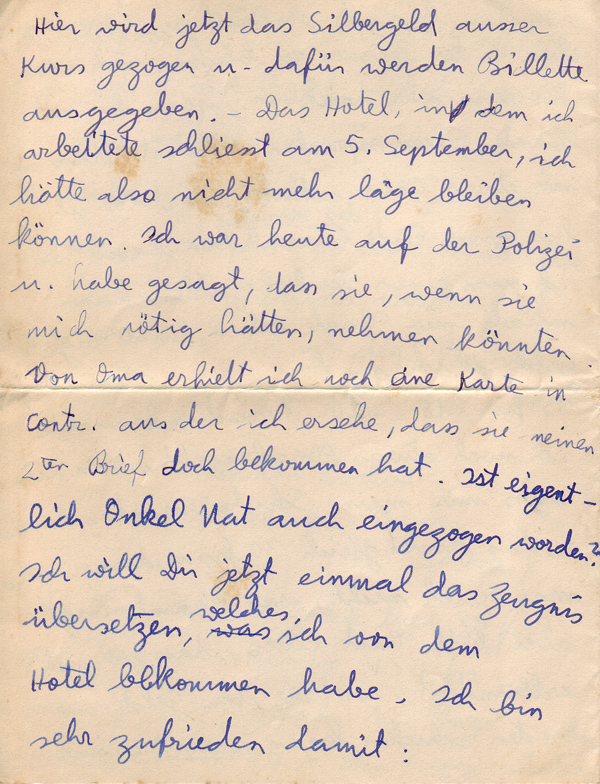 Hier wird jetzt das Silbergeld ausser
Kurs gezogen u- dafür werden Billette
ausgegeben. - Das Hotel, in dem ich
arbeitete schliesst am 5. September, ich
hätte also nicht mehr läge bleiben
können. Ich war heute auf der Polizei
u. habe gesagt, dass sie, wenn sie
mich nötig hätten, nehmen könnten.
Von Oma erhielt ich noch eine Karte in
Contr. aus der ich ersehe, dass sie meinen
2ten Brief doch bekommen hat. Ist eigent-
lich Onkel Nat auch eingezogen worden?
Ich will Dir jetzt einmal das Zeugnis
welches
übersetzen, was ich von dem
Hotel bekommen habe. Ich bin
sehr zufrieden damit: